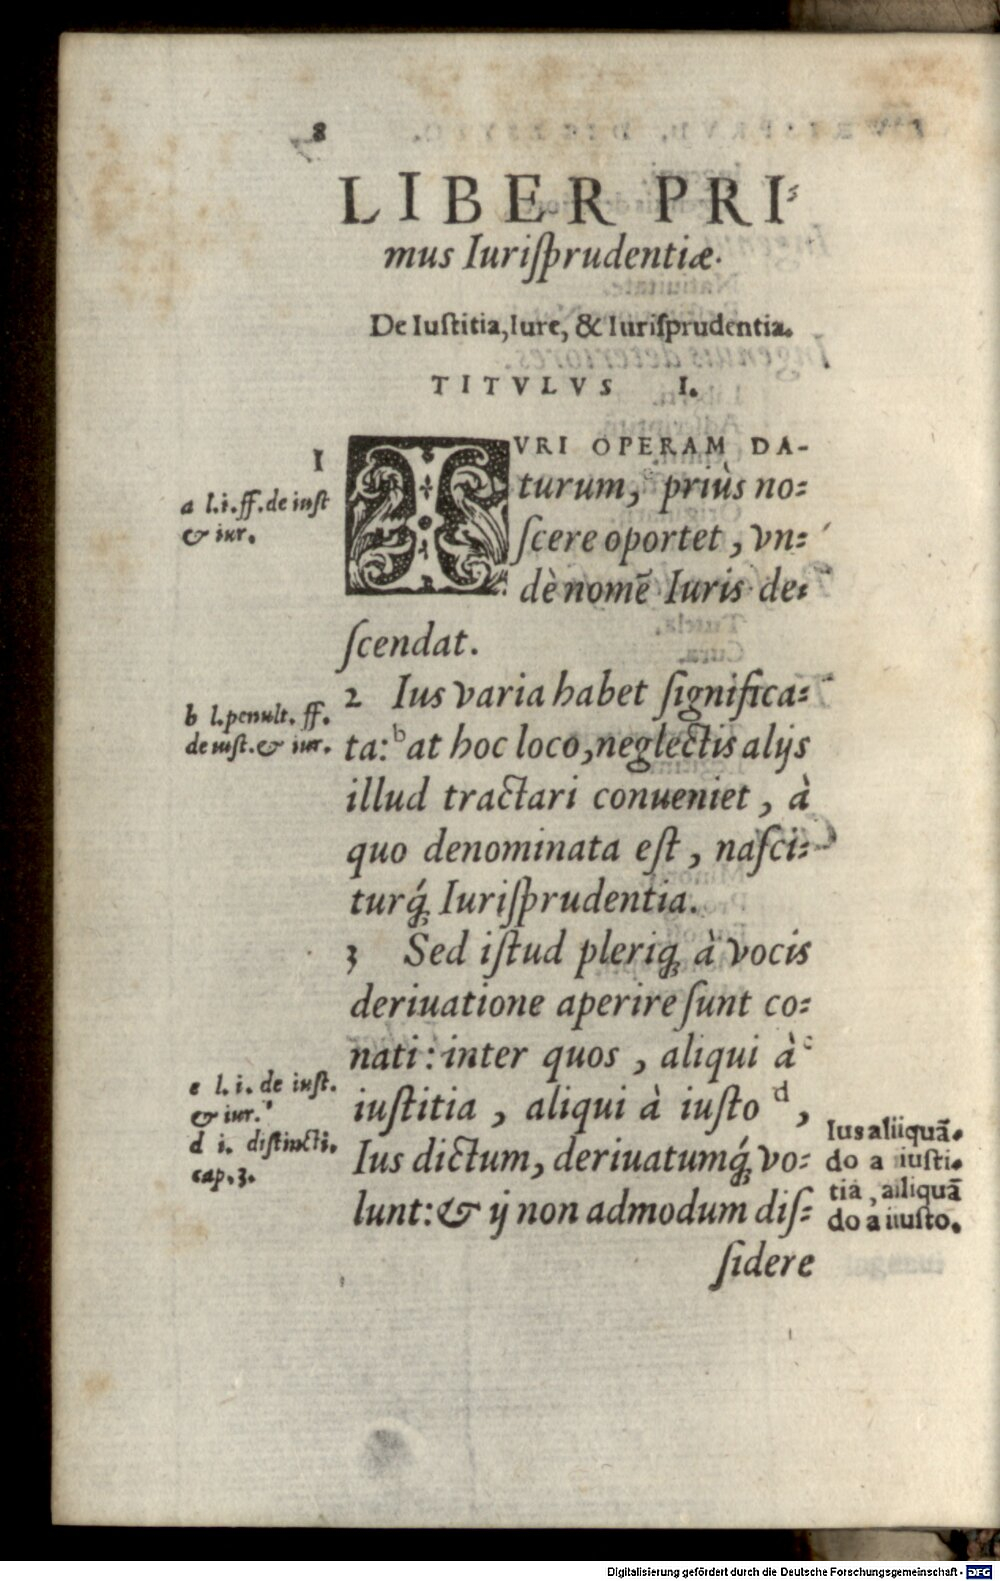 8
LIBER PRI⸗
mus Iuriſprudentiæ.
De Iuſtitia, Iure, & Iuriſprudentia.
TITVLVS I.
1
a l.i.ff.de iuſt
& iur.
IVRI OPERAM DA-
turum, priùs no⸗
ſcere oportet, vn⸗
dè nomē Iuris de⸗
ſcendat.
2 Ius varia habet ſignifica⸗
ta: b at hoc loco, neglectis alijs
illud tractari conueniet, à
quo denominata eſt, naſci⸗
turq́ꝫ Iuriſprudentia.
b l.penult. ff.
de iuſt. & iur.
3 Sed iſtud pleriqꝫ à vocis
deriuatione aperire ſunt co⸗
nati: inter quos, aliqui à c
iuſtitia, aliqui à iuſto d,
Ius dictum, deriuatumq́ꝫ vo⸗
lunt: & ij non admodum diſ⸗
ſidere
e l. i. de iuſt.
& iur.
d i. diſtincti.
cap.3.
Ius aliiquā.
do a iuſti.
tia, ailiquā
do a iiuſto.
Digitalisierung gefördert durch die Deutsche Forschungsgemeinschaft - DFG